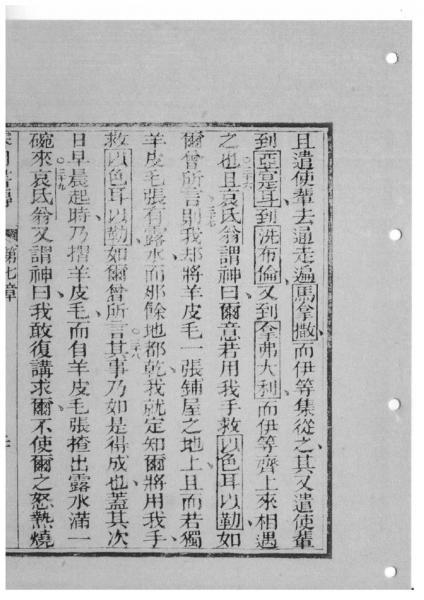 且遣使輩去通走遍馬拿撒而伊等集從之其又遣使輩
到亞寔耳到洗布倫又到拿弗大利而伊等齊上來相遇
之也且哀氏翁謂神曰爾意若用我手救以色耳以勒如
爾曾所言則我却將羊皮毛一張鋪屋之地上且而若獨
羊皮毛張有露水而那餘地都乾我就定知爾將用我手
救以色耳以勒如爾曾所言其事乃如是得成也蓋其次
日早晨起時乃摺羊皮毛而自羊皮毛張揸出露水滿一
碗來哀氏翁又謂神曰我敢復講求爾不使爾之怒熱燒
第七章